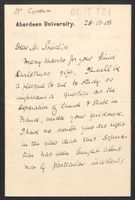 Dr Cowan
05.12.221
Aberdeen University.
28-12-05
Many thanks for your kind
Christmas gift. I shall be
pleased to and to study so
important a question as the
separation of Church & State in
France, under your guidance.
I have no doubt you are right
in the view that this separa-
tion has been brought about
by particular incidents